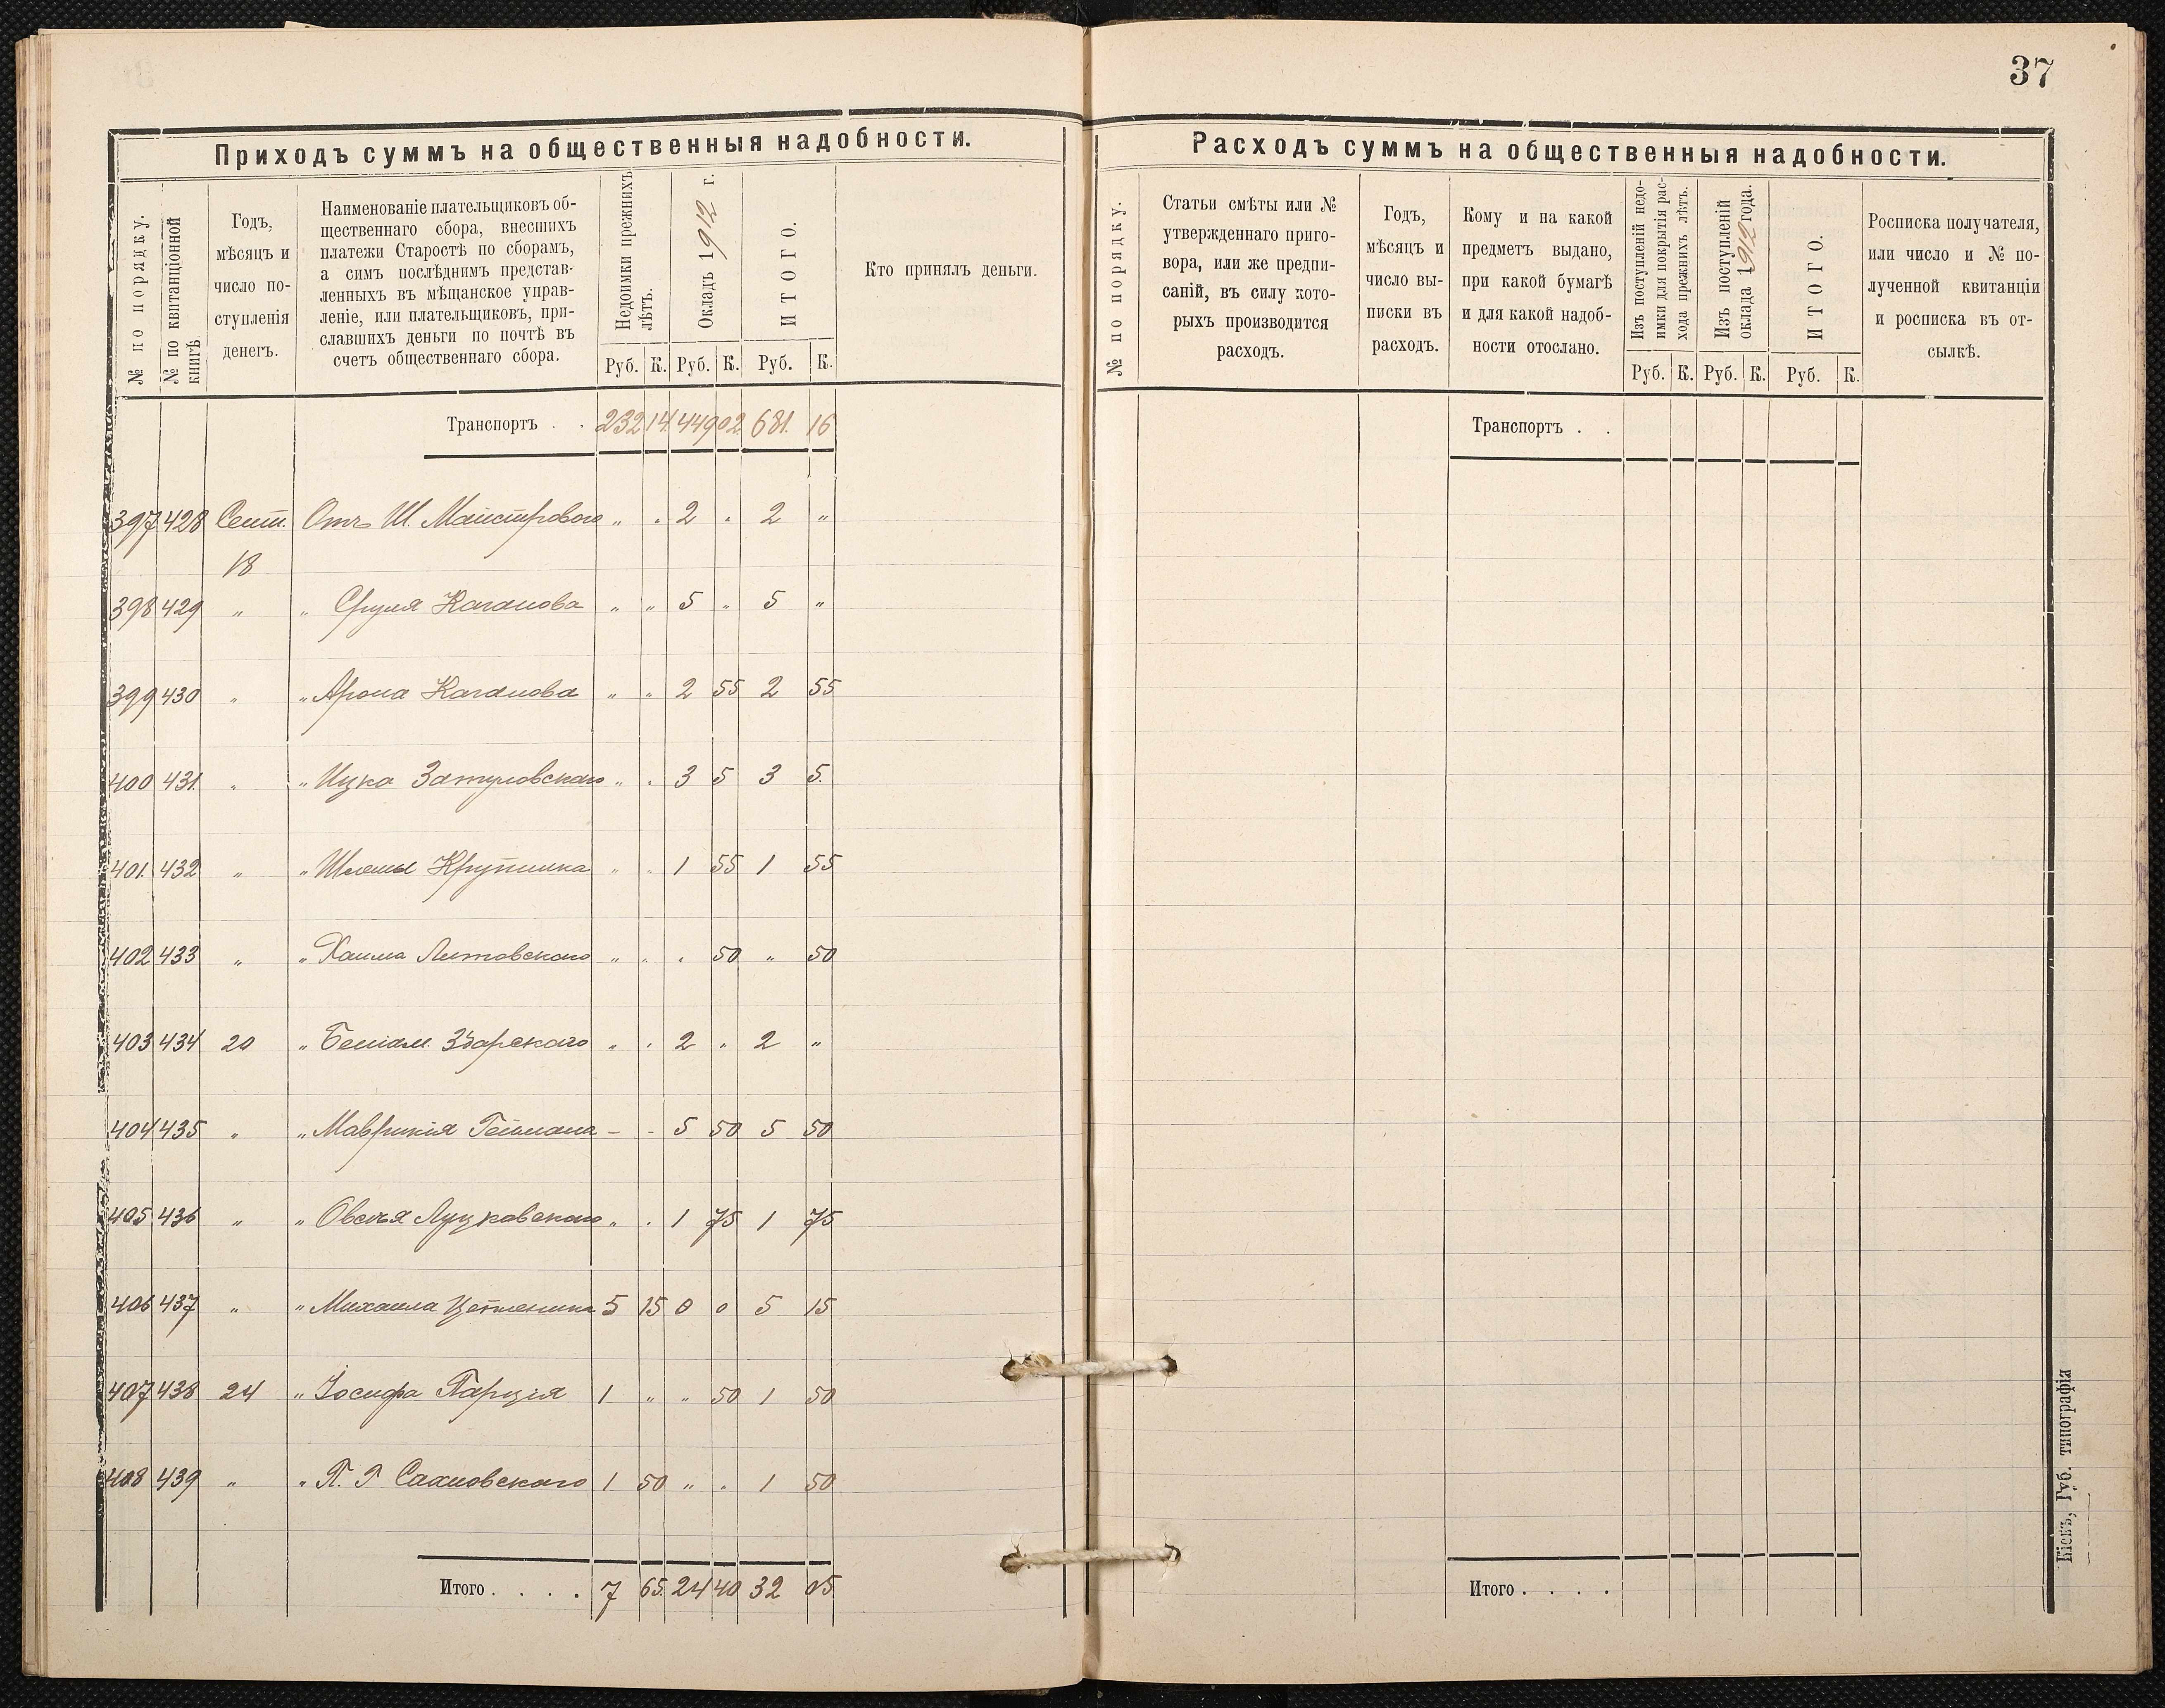 37
Приходъ суммъ на общественныя надобности.
№ по порядку.
№ по квитанціонной книгѣ
Годъ,
мѣсяцъ и
число по-
ступленія
денегъ.
Наименованіе плательщиковъ об-
щественнаго сбора, внесшихъ
платежи Старостѣ по сборамъ,
а симъ послѣднимъ представ-
ленныхъ въ мѣщанское управ-
леніе, или плательщиковъ, при-
славшихъ деньги по почтѣ въ
счетъ общественнаго сбора.
Недоимки прежнихъ
лѣтъ.
Окладъ 1912 г.
ИТОГО.
Кто принялъ деньги.
Руб. К. Руб. К. Руб. К.
Транспортъ . . 232 14. 449 02. 681. 16
397 428 Сент. Отъ Ш. Майстрового „ „ 2 „ 2 „
18
398 429 „ „ Сруля Каганова „ „ 5 „ 5 „
399 430 „ „ Арона Каганова „ „ 2 55 2 55
400 431. „ „ Ицка Затуловскаго „ „ 3 5 3 5.
401. 432 „ „ Шлемы „ „ 1 55 1 55
402 433 „ „ Хаима Литовскаго „ „ „ 50 „ 50
403 434 20 „ Беніам. Збарскаго „ „ 2 „ 2 „
404 435 „ „ Маврикія Геймана - - 5 50 5 50
405 436 „ „ Овсея Луцковскаго „ „ 1 75 1 75
406 437 „ „ Михаила 5 15 0 0 5 15
407 438 24 „ Іосифа 1 „ „ 50 1 50
408 439 „ „ П. Г. Сахновскаго 1 50 „ „ 1 50
Итого . . . . 7 65. 24 40 32 05
Расходъ суммъ на общественныя надобности.
№ по порядку.
Статьи смѣты или №
утвержденнаго приго-
вора, или же предпи-
саній, въ силу кото-
рыхъ производится
расходъ.
Годъ,
мѣсяцъ и
число вы-
писки въ
расходъ.
Кому и на какой
предметъ выдано,
при какой бумагѣ
и для какой надоб-
ности отослано.
Изъ поступленій недо-
имки для покрытія рас-
хода прежнихъ лѣтъ.
Изъ поступленій
оклада 1912 года.
ИТОГО.
Росписка получателя,
или число и № по-
лученной квитанціи
и росписка въ от-
сылкѣ.
Руб. К. Руб. К. Руб. К.
Транспортъ . .
Итого . . . .
Кіевъ, Губ. типографія